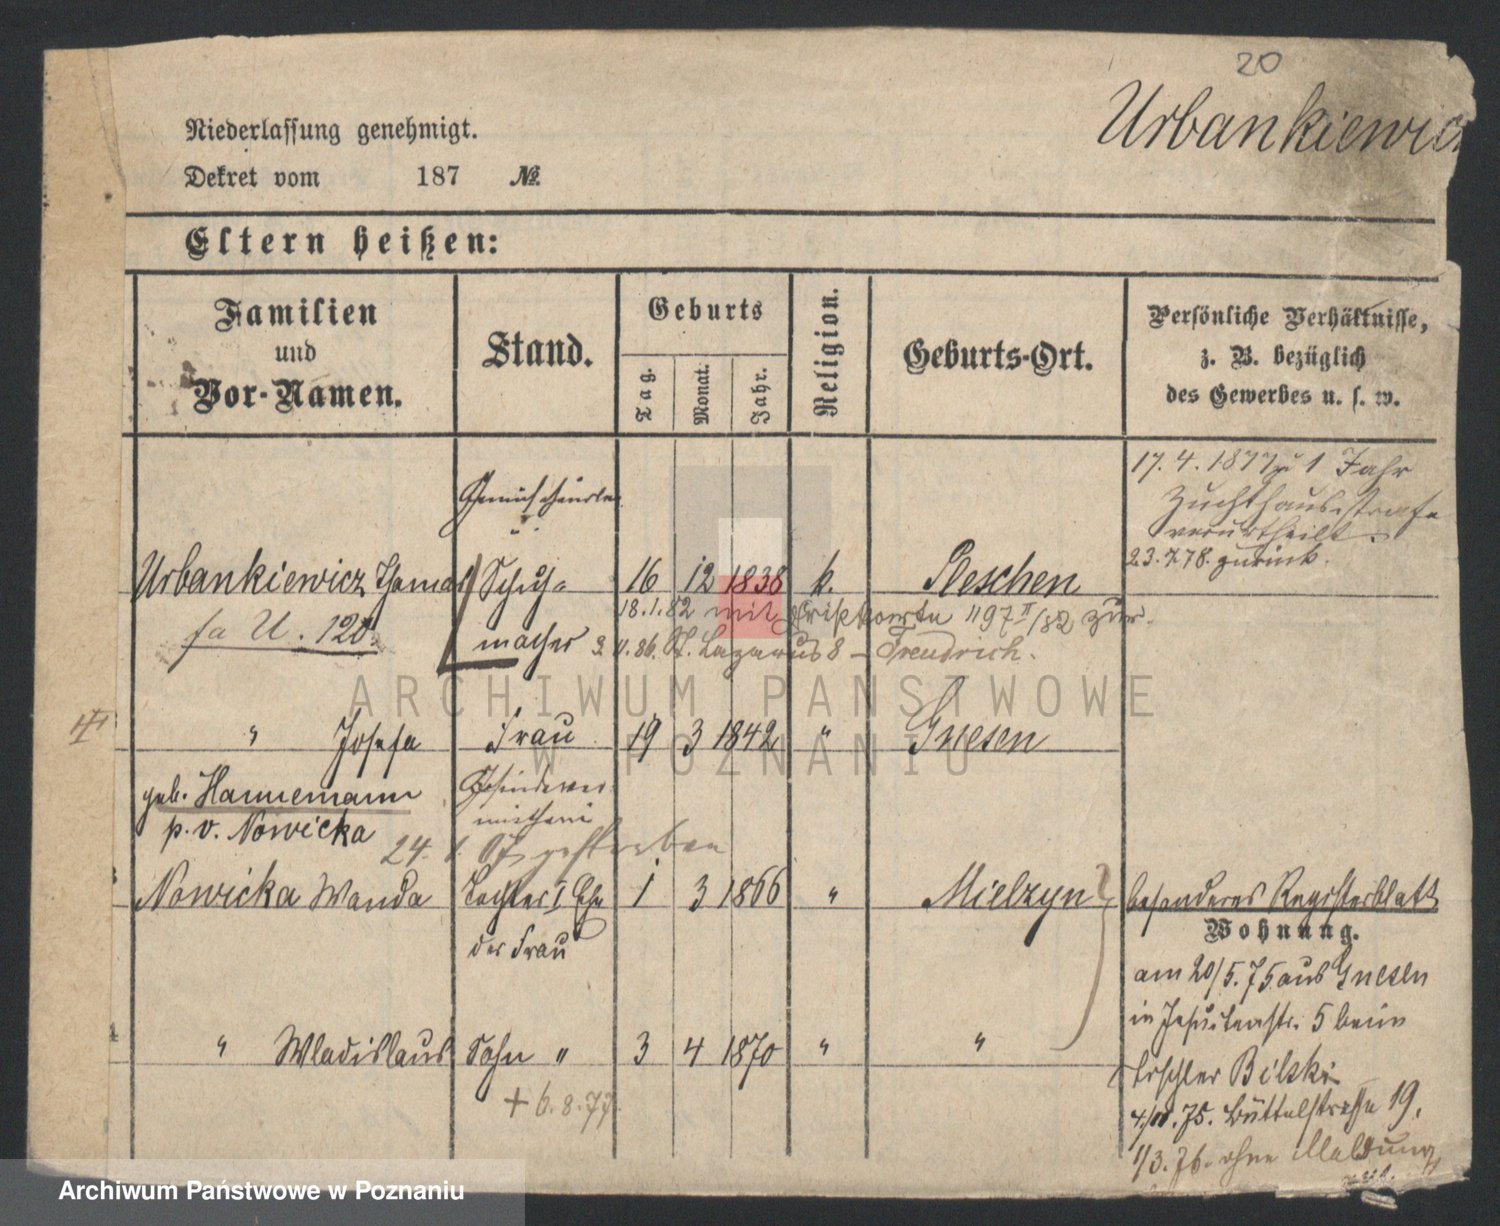 20
Urbankiewicz
Niederlassung genehmigt.
Dekret vom 187 №
Eltern heißen:
Familien und Vor-Namen.
Stand.
Geburts
Tag.
Monat.
Jahr.
Religion.
Geburts-Ort.
Persönliche Verhältnisse,
z. B. bezüglich
des Gewerbes u. s. w.
17. 4. 1877 zu 1 Jahr
Zuchthausstrafe
verurtheilt.
23.7.78. zurück.
Urbankiewicz Thomas Schuh- 16 12 1838 k. Pleschen
fa U. 120.
macher
18.1.82 mit 1197 II/82 zur.
3. 11. 86. St. Lazarus 8 –
" Josefa Frau 19 3 1842 " Gnesen
geb. Hannemann
p. v. Nowicka
Gesindever-
mietherin
24. gestorben
Nowicka Wanda Tochter I Ehe 1 3 1866 " Mielzyn
der Frau
besonderes Registerblatt
Wohnung.
am 20/5.75 aus Gnesen
in Jesuitenstr. 5 beim
Tischler Bilski
" Wladislaus Sohn " 3 4 1870 " "
+ 6.8.77.
75. Büttelstrasse 19.
1/3.76. ohne Meldung
ARCHIWUM PAŃSTWOWE
W POZNANIU
Archiwum Państwowe w Poznaniu